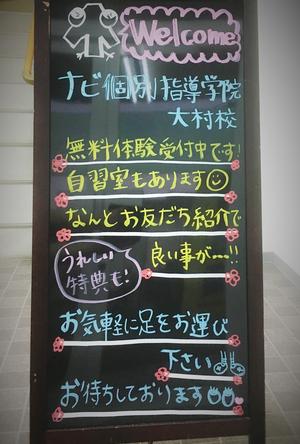 Welcome
ナビ個別指導学院
大村校
無料体験受付中です!
自習室もあります
なんとお友だち紹介で
うれしい
特典も!
良い事が…!!
お気軽に足をお運び
下さい
お待ちしております